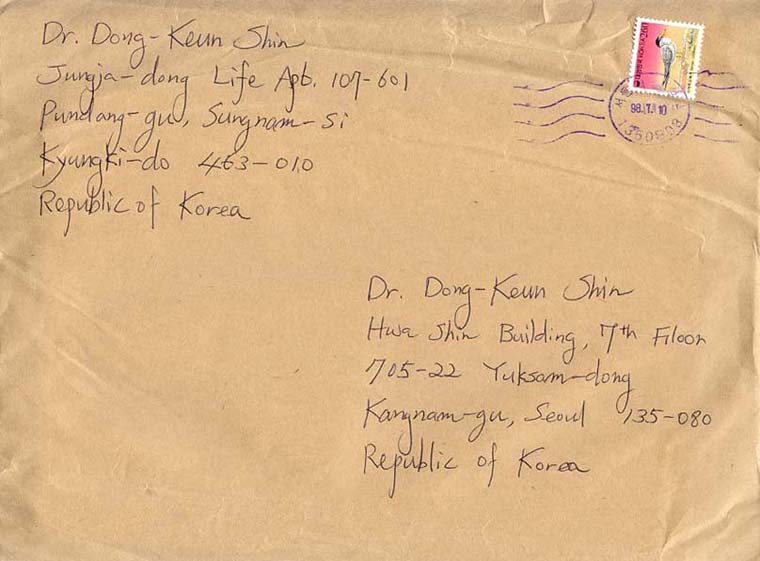 Dr. Dong-Keun Shin
Jungja-dong Life Apb. 107-601
Pundang-gu, Sungnam-si
Kyungki-do 463-010
Republic of Korea
98.7.10
1350808
Dr. Dong-Keun Shin
Hwa Shin Building, 7th Filoor
705-22 Yuksam-dong
Kangnam-gu, Seoul 135-080
Republic of Korea